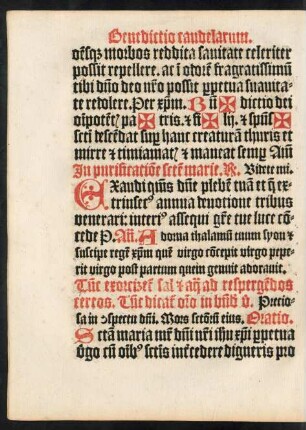 Benedictio candelarum.
oẽsq̃ morbos reddita sanitate celeriter
possit repellere. ac ĩ odorẽ fragratissimũ
tibi dño deo nr̃o possit ꝑpetua suauita-
te redolere. Per xp̃m. Bñ ✠ dictio dei
oĩpotẽtꝭ pa ✠ tris. ⁊ fi ✠ lij. ⁊ sp̃us ✠
sc̃ti descẽdat suꝑ hanc creaturã thuris et
mirre ⁊ timiamatꝭ ⁊ maneat semꝑ Am̃
In purificatiõe scẽte marie. R. Videte mi.
Exaudi q̃ms dñe plebẽ tuã et q̃ ex-
trinsecꝰ annua deuotione tribus
venerari: interiꝰ assequi gr̃e tue luce cõ-
cede P. Añ. Adorna thalamũ tuum syon ⁊
suscipe regẽ xp̃m quẽ virgo cõcepit virgo pepe-
rit virgo post partum quem genuit adorauit.
Tũc exorciset̃ sal ⁊ aq̃ ad respergẽdos
cereos. Tũc dicat̃ oro͂ in bñdõ õ. Precio-
sa in ɔspectu dñi. Mors sctõrũ eius. Oratio.
Scta maria mr̃ dñi nr̃i ihu xp̃i ꝑpetua
v̓go cũ oĩbꝰ sctĩs int̃cedere digneris pro